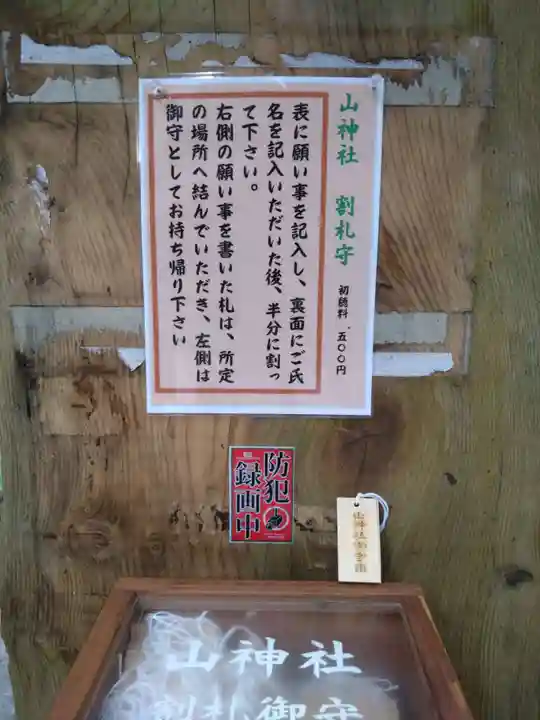 山神社 割札守 初穂料 .五〇〇円
表に願い事を記入し、裏面にご氏
名を記入いただいた後、半分に割っ
て下さい。
右側の願い事を書いた札は、所定
の場所へ結んでいただき、左側は
御守としてお持ち帰り下さい
防犯
録画中
山神社
割札御守